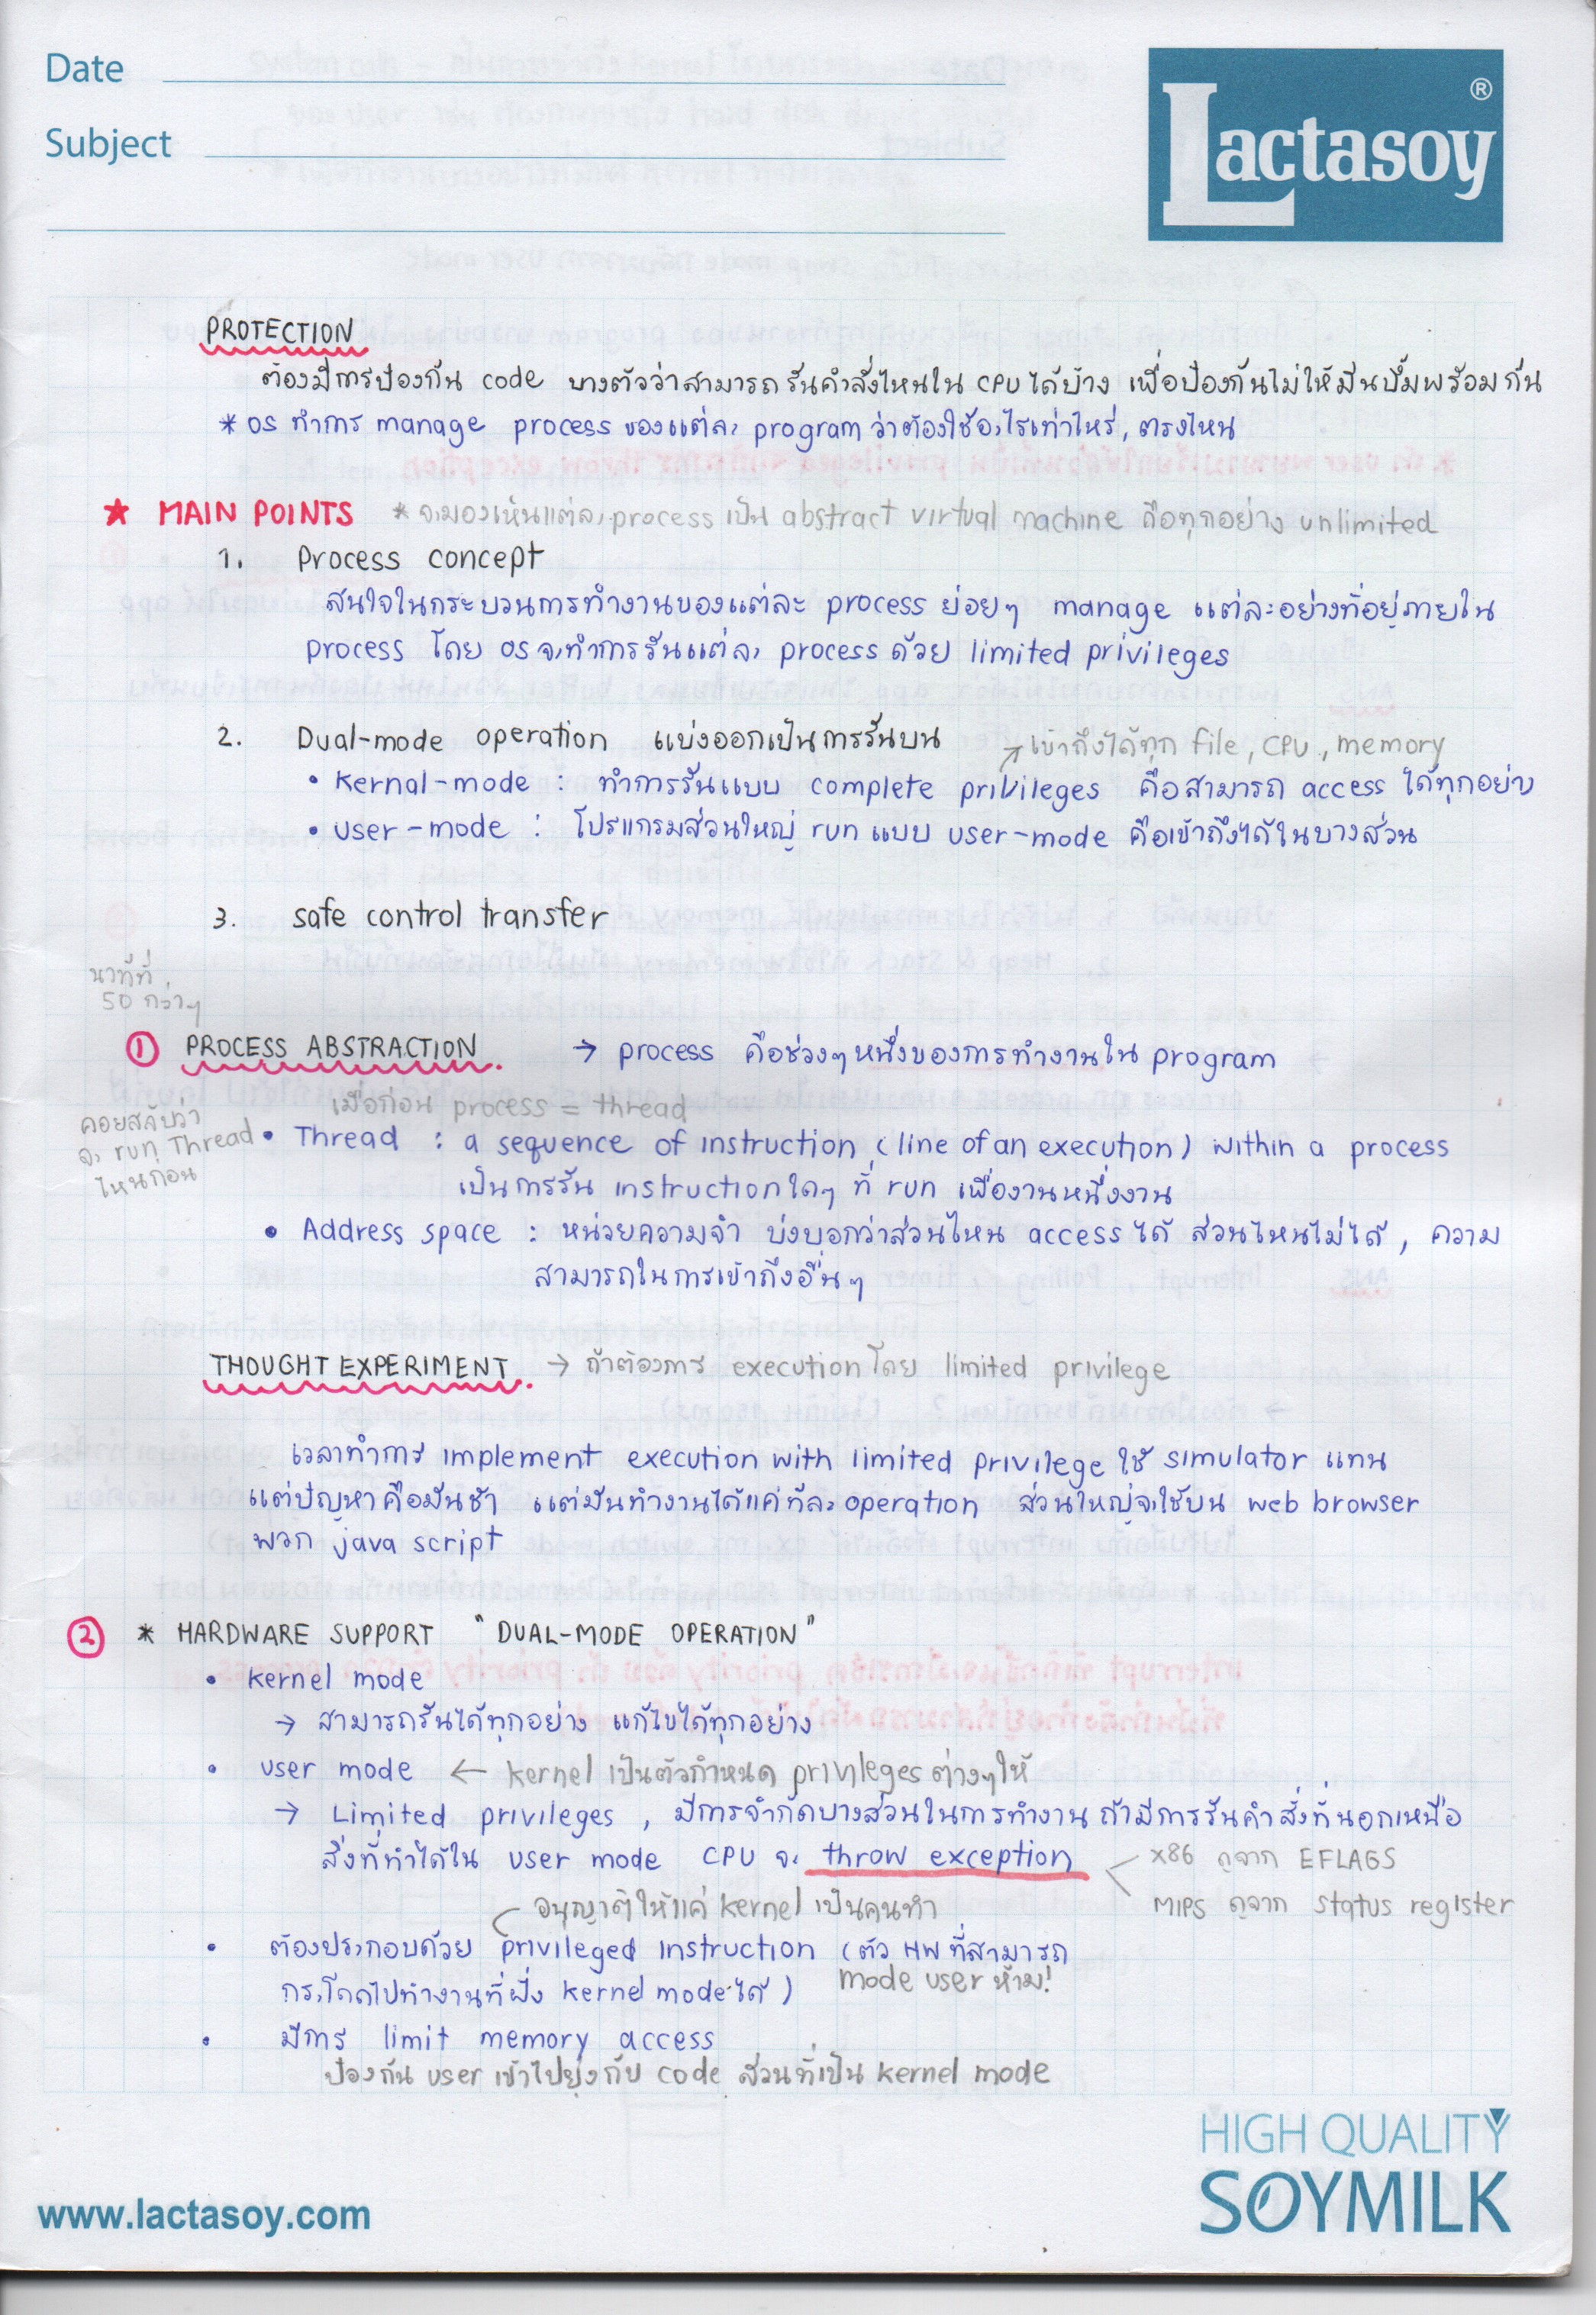 Date
Subject
Lactasoy ®
PROTECTION
ต้องมีการป้องกัน code บางตัวว่าสามารถรันคำสั่งไหนใน CPU ได้บ้าง เพื่อป้องกันไม่ให้มันปั๊มพร้อมกัน
* OS ทำการ manage process ของแต่ละ program ว่าต้องใช้อะไรเท่าไหร่, ตรงไหน
★ MAIN POINTS * จะมองเห็นแต่ละ process เป็น abstract virtual machine คือทุกอย่าง unlimited
1. Process concept
สนใจในกระบวนการทำงานของแต่ละ process ย่อยๆ manage แต่ละอย่างที่อยู่ภายใน
process โดย OS จะทำการรันแต่ละ process ด้วย limited privileges
2. Dual-mode operation แบ่งออกเป็นการรันบน
↗ เข้าถึงได้ทุก file, CPU, memory
• Kernal-mode : ทำการรันแบบ complete privileges คือสามารถ access ได้ทุกอย่าง
• User-mode : โปรแกรมส่วนใหญ่ run แบบ user-mode คือเข้าถึงได้ในบางส่วน
3. safe control transfer
นาทีที่
50 กว่าๆ
① PROCESS ABSTRACTION → process คือช่วงๆหนึ่งของการทำงานใน program
เมื่อก่อน process = thread
คอยสลับว่า
จะ run Thread
ไหนก่อน
• Thread : a sequence of instruction (line of an execution) within a process
เป็นการรัน instruction ใดๆ ที่ run เพื่องานหนึ่งงาน
• Address space : หน่วยความจำ บ่งบอกว่าส่วนไหน access ได้ ส่วนไหนไม่ได้, ความ
สามารถในการเข้าถึงอื่นๆ
THOUGHT EXPERIMENT → ถ้าต้องการ execution โดย limited privilege
เวลาทำการ implement execution with limited privilege ใช้ simulator แทน
แต่ปัญหาคือมันช้า แต่มันทำงานได้แค่ทีละ operation ส่วนใหญ่จะใช้บน web browser
พวก java script
② * HARDWARE SUPPORT "DUAL-MODE OPERATION"
• kernel mode
→ สามารถรันได้ทุกอย่าง แก้ไขได้ทุกอย่าง
• user mode ← kernel เป็นตัวกำหนด privileges ต่างๆให้
→ Limited privileges , มีการจำกัดบางส่วนในการทำงาน ถ้ามีการรันคำสั่งที่นอกเหนือ
สิ่งที่ทำได้ใน user mode CPU จะ throw exception
x86 ดูจาก EFLAGS
MIPS ดูจาก status register
อนุญาติให้แค่ kernel เป็นคนทำ
• ต้องประกอบด้วย privileged instruction (ตัว HW ที่สามารถ
กระโดดไปทำงานที่ฝั่ง kernel mode ได้)
mode user ห้าม!
• มีการ limit memory access
ป้องกัน user เข้าไปยุ่งกับ code ส่วนที่เป็น kernel mode
HIGH QUALITY
SOYMILK
www.lactasoy.com